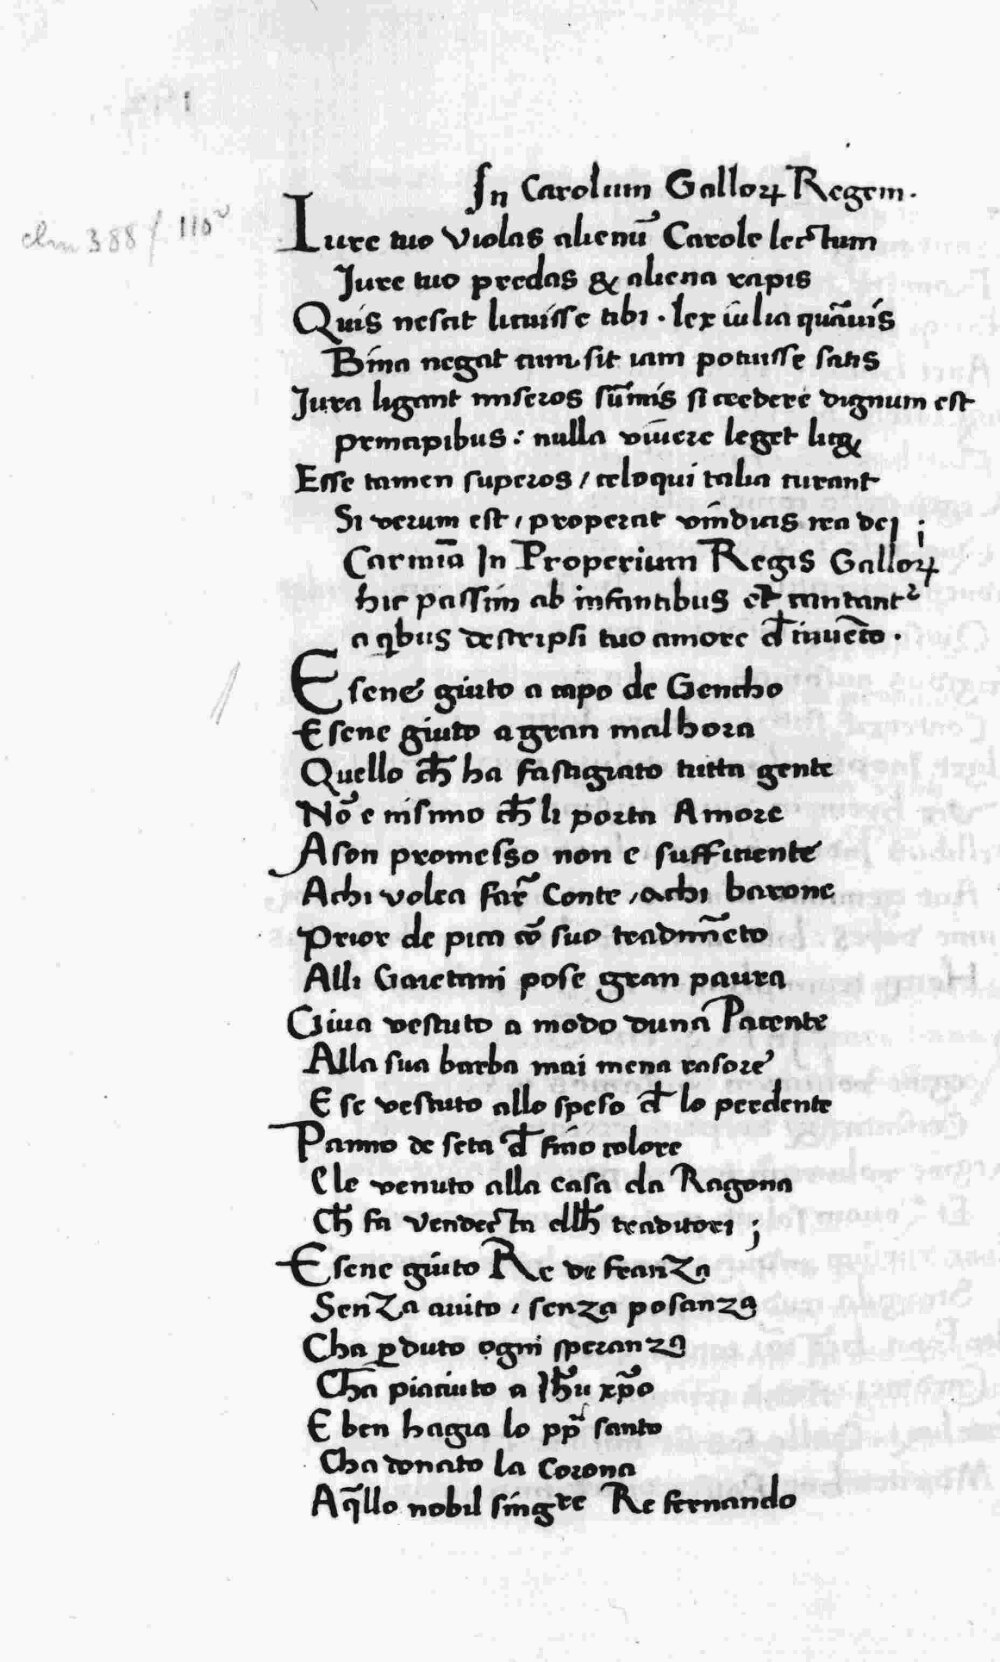 In Carolum Galloꝝ Regem.
clm 388 / 110ᵛ
Iure tuo violas alienū Carole lectum
Iure tuo predas & aliena rapis
Quis nesciat licuisse tibi. lex iulia quāuis
Bina negat cum sit iam potuisse satis
Iura ligant miseros sūmis si credere dignum est
principibus: nulla viuere leget licꝫ
Esse tamen superos / celoqui talia curant
Si verum est, properat vindicis ira dei ;
Carmīa In Properium Regis Galloꝝ
hic passim ab infantibus et cantantʳ
a qbus descripsi tuo amore đ inuēto.
Esene giuto a capo de Gencho
Esene giuto a gran malhora
Quello ch̄ ha fastigiato tutta gente
Nō e nisuno ch̄ li porta Amore
Ason promesso non e sufficiente
Achi volea far̄ Conte, achi barone
Prior de pica cō suo tradim̄eto
Alli Gaietani pose gran paura
Giua vestuto a modo duna Pacente
Alla sua barba mai mena rasore
E se vestuto allo speso đ lo perdente
Panno de seta đ fino colore
Cle venuto alla casa da Ragona
Ch̄ fa vendecta dllh̄ traditori ;
Esene giuto Re de franza
Senza aiuto, senza posanza
Cha ꝑduto ogni speranza
Ch̄a piaciuto a Ih̄u xp̄o
E ben hagia lo pp̄ santo
Cha donato la corona
Aq̄llo nobil singre Re fernando